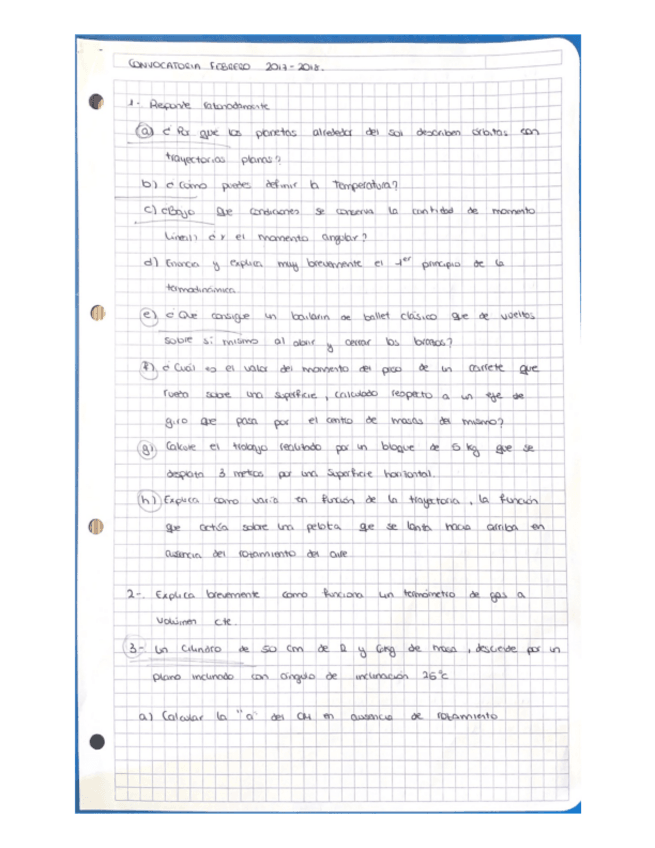 CONVOCATORIA FEBRERO 2017-2018.
1.- Responde razonadamente
a) ¿Por que los planetas alrededor del sol describen órbitas con
trayectorias planas?
b) ¿Cómo puedes definir la Temperatura?
c) ¿Bajo que condiciones se conserva la cantidad de momento
lineal? ¿Y el momento angular?
d) Enuncia y explica muy brevemente el 1er principio de la
termodinámica.
e) ¿Que consigue un bailarin de ballet clásico que da vueltas
sobre si mismo al abrir y cerrar los brazos?
f) ¿Cuál es el valor del momento del peso de un carrete que
rueda sobre una superficie, calculado respecto a un eje de
giro que pasa por el centro de masas del mismo?
g) Calcule el trabajo realizado por un bloque de 5 kg que se
desplaza 3 metros por una superficie horizontal.
h) Explica como varia en función de la trayectoria, la función
que actúa sobre una pelota que se lanza hacia arriba en
ausencia del rozamiento del aire
2-. Explica brevemente como funciona un termómetro de gas a
volumen cte.
3- Un cilindro de 50 cm de R y de masa, desciende por un
plano inclinado con ángulo de inclinación 25°c
a) Calcular la "a" del CM en ausencia de rozamiento